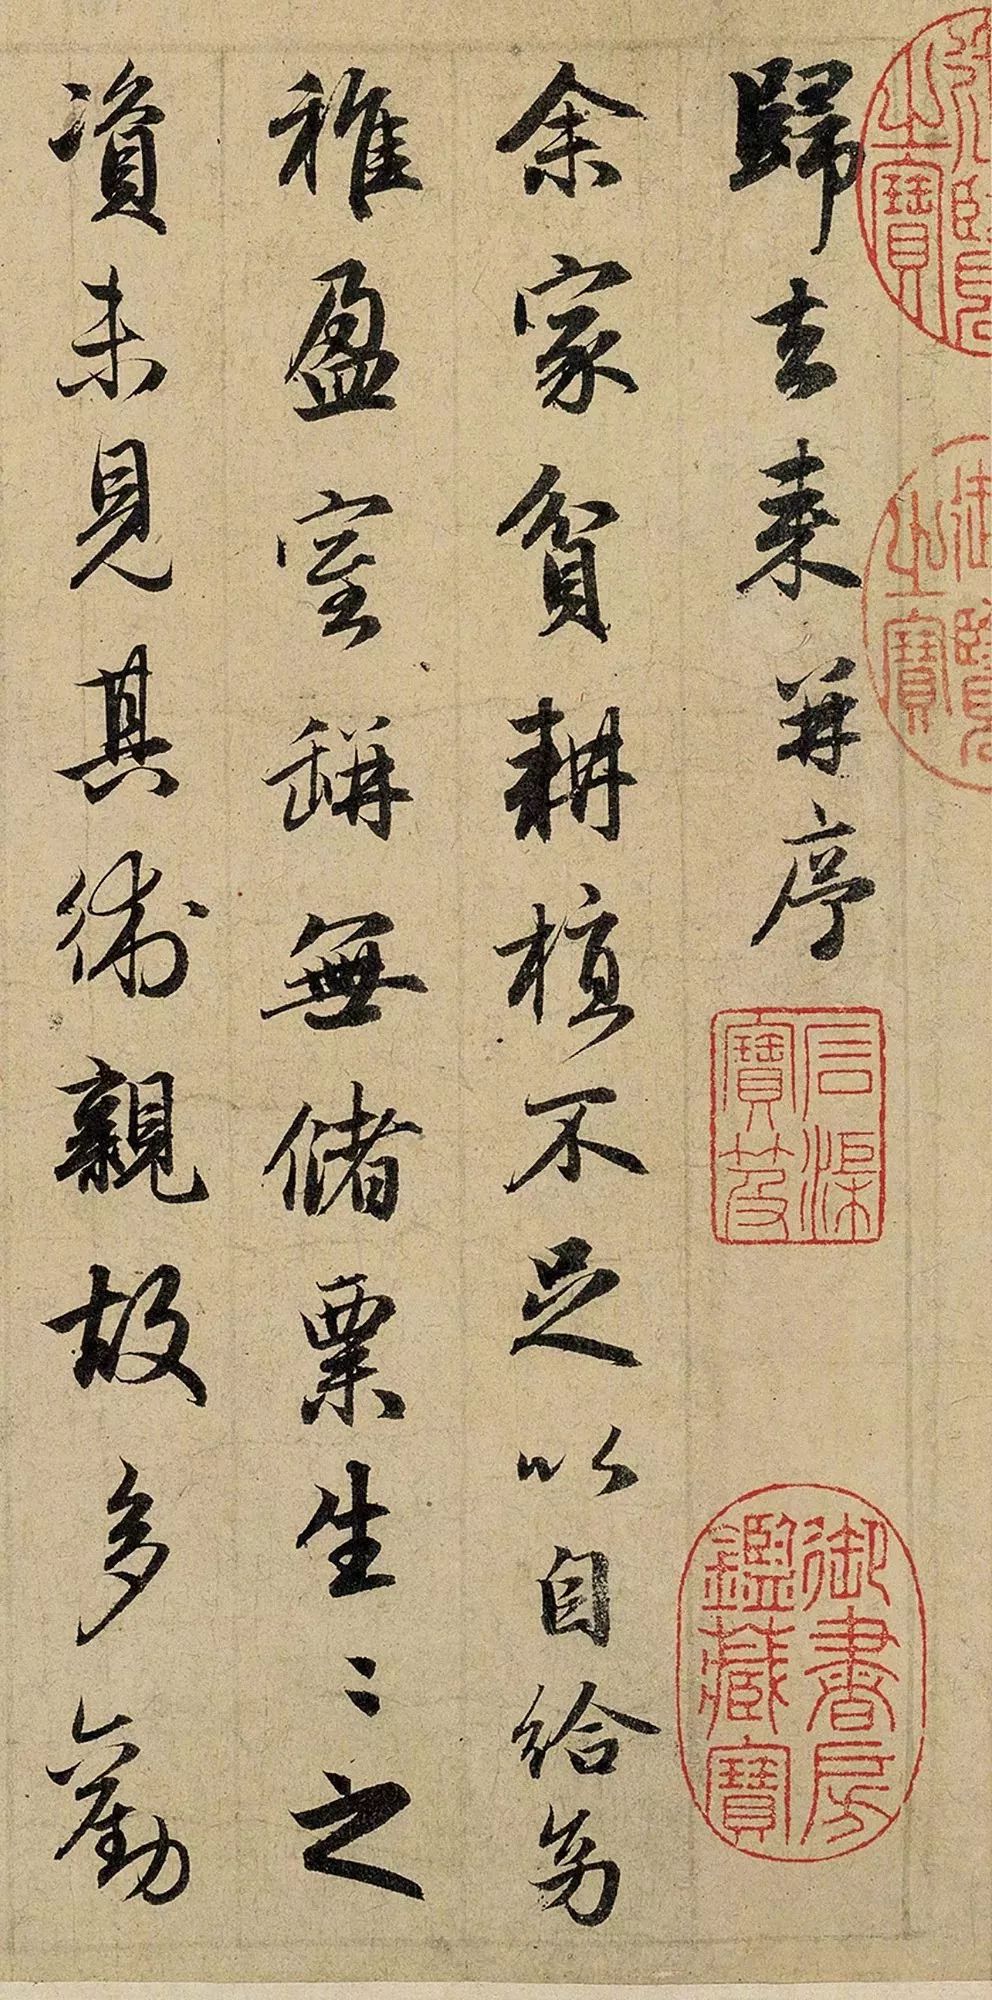 御覽之寶
御覽之寶
歸去来并序
石渠寶笈
御書房鑑藏寶
余家貧耕植不足以自給幼
稚盈室缾無儲粟生〻之
資未見其術親故多勸